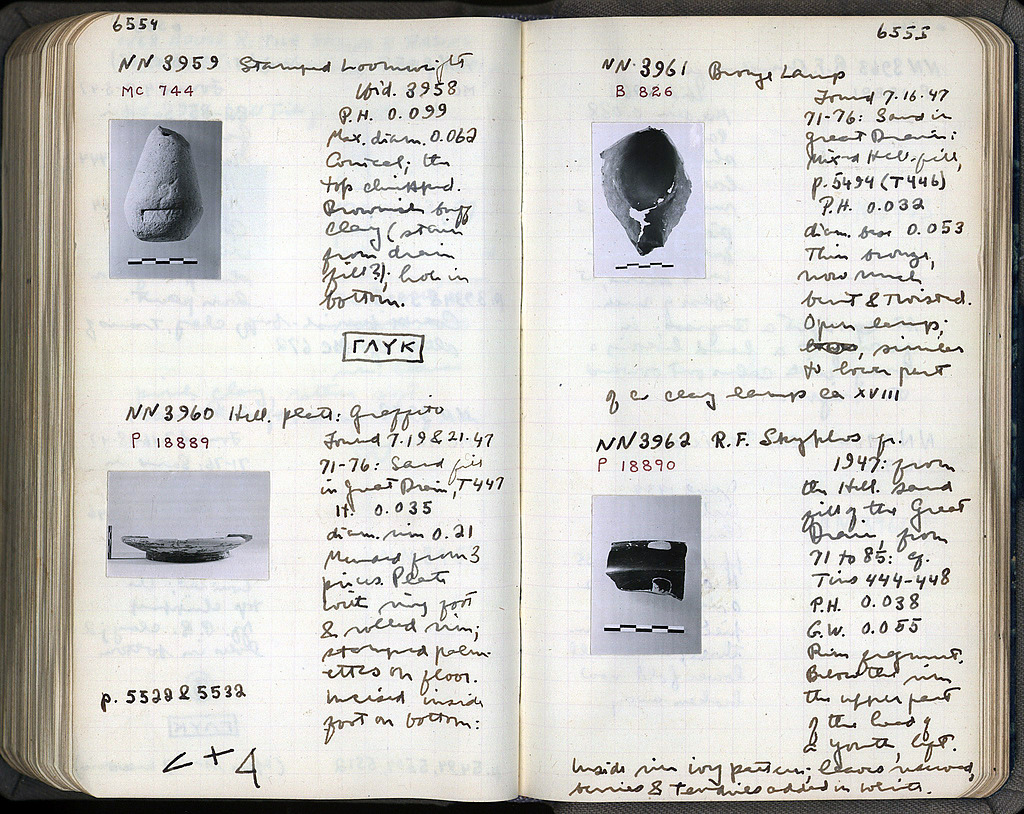 6554
NN 3959 Stamped Loomweight
MC 744
Wid. 3958
P.H. 0.099
Max. diam. 0.062
Conical; the
top chipped.
Brownish buff
clay (stain
from drain
fill?); hole in
bottom.
ΓΛΥΚ
NN 3960 Hell. plate: Graffito
P 18889
Found 7.19 & 21.47
71-76: Sand fill
in Great Drain, T447
H. 0.035
diam. rim 0.21
Mended from 3
pieces. Plate
with ring foot
& rolled rim;
stamped palm-
ettes on floor.
Incised inside
foot on bottom:
p. 5522 & 5532
6555
NN 3961 Bronze Lamp
B 826
Found 7.16.47
71-76: Sand in
Great Drain:
mixed Hell. fill,
p. 5494 (T446)
P.H. 0.032
diam. base 0.053
Thin bronze,
now much
bent & twisted.
Open lamp;
similar
to lower part
of a clay lamp ca XVIII
NN 3962 R.F. Skyphos fr.
P 18890
1947: from
the Hell. sand
fill of the Great
Drain, from
71 to 85: cf.
Tins 444-448
P.H. 0.038
G.W. 0.055
Rim fragment.
Below the rim
the upper part
of the head of
a youth, left.
Inside rim ivy pattern; leaves reserved,
berries & tendrils added in white.